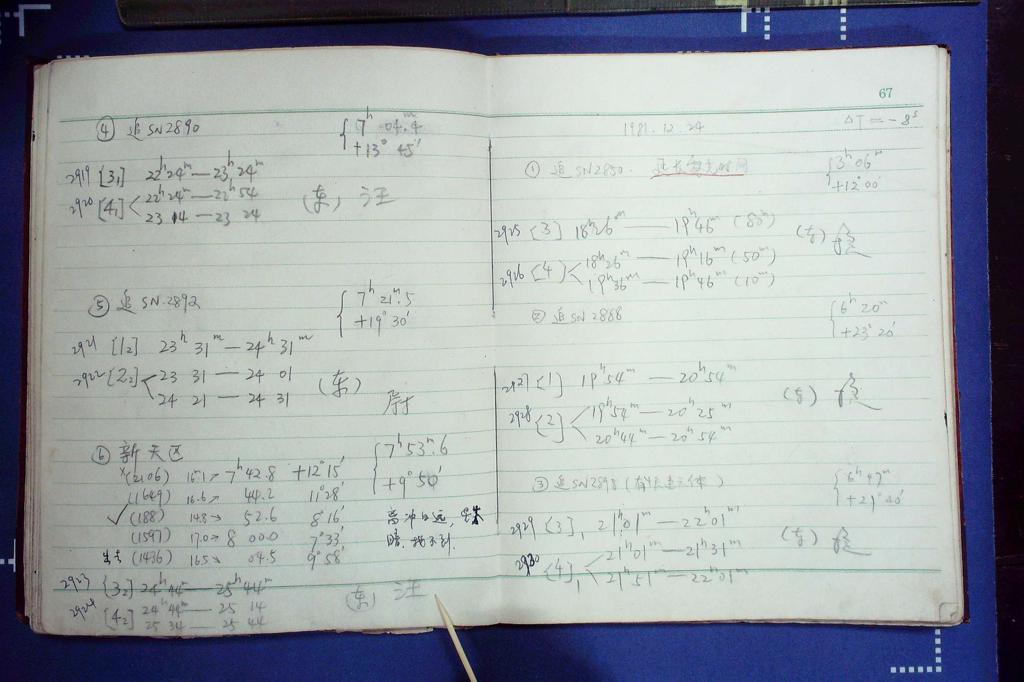 ④ 追 SN2890
{ 7ʰ 04.ᵐ4
+13° 45′
2919 [3₁] 22ʰ24ᵐ — 23ʰ24ᵐ
2920 [4₁] < 22ʰ24ᵐ — 22ʰ54
23 14 — 23 24
(东) 汪
⑤ 追 SN 2892
{ 7ʰ 21ᵐ.5
+19° 30′
2921 [1₂] 23ʰ 31ᵐ — 24ʰ 31ᵐ
2922 [2₂] < 23 31 — 24 01
24 21 — 24 31
(东)
⑥ 新天区
{ 7ʰ53ᵐ.6
+9° 50′
× (2106) 16.1 > 7ʰ42.8 +12°15′
(1649) 16.6 > 44.2 11°28′
✓ (188) 14.8 > 52.6 8°16′
(1597) 17.0 > 8 00.0 7°33′
(1436) 16.5 > 04.5 9°58′
离冲日远,
暗, 找不到.
2923 [3₂] 24ʰ44ᵐ — 25ʰ44ᵐ
2924 [4₂] 24ʰ44ᵐ — 25 14
25 34 — 25 44
(东) 汪
67
1981.12.24
ΔT = -8ˢ
① 追 SN2850. 延长露光时间
{ 3ʰ 06ᵐ
+12° 00′
2925 [3] 18ʰ26ᵐ — 19ʰ46ᵐ (80ᵐ)
2926 [4] < 18ʰ26ᵐ — 19ʰ16ᵐ (50ᵐ)
19ʰ36ᵐ — 19ʰ46ᵐ (10ᵐ)
② 追 SN 2888
{ 6ʰ 20ᵐ
+23° 20′
2927 [1] 19ʰ54ᵐ — 20ʰ54ᵐ
2928 [2] < 19ʰ54ᵐ — 20ʰ25ᵐ
20ʰ44ᵐ — 20ʰ54ᵐ
③ 追 SN2898
{ 6ʰ 47ᵐ
+21° 40′
2929 [3]₁ 21ʰ01ᵐ — 22ʰ01ᵐ
2930 [4]₁ < 21ʰ01ᵐ — 21ʰ31ᵐ
21ʰ51ᵐ — 22ʰ01ᵐ